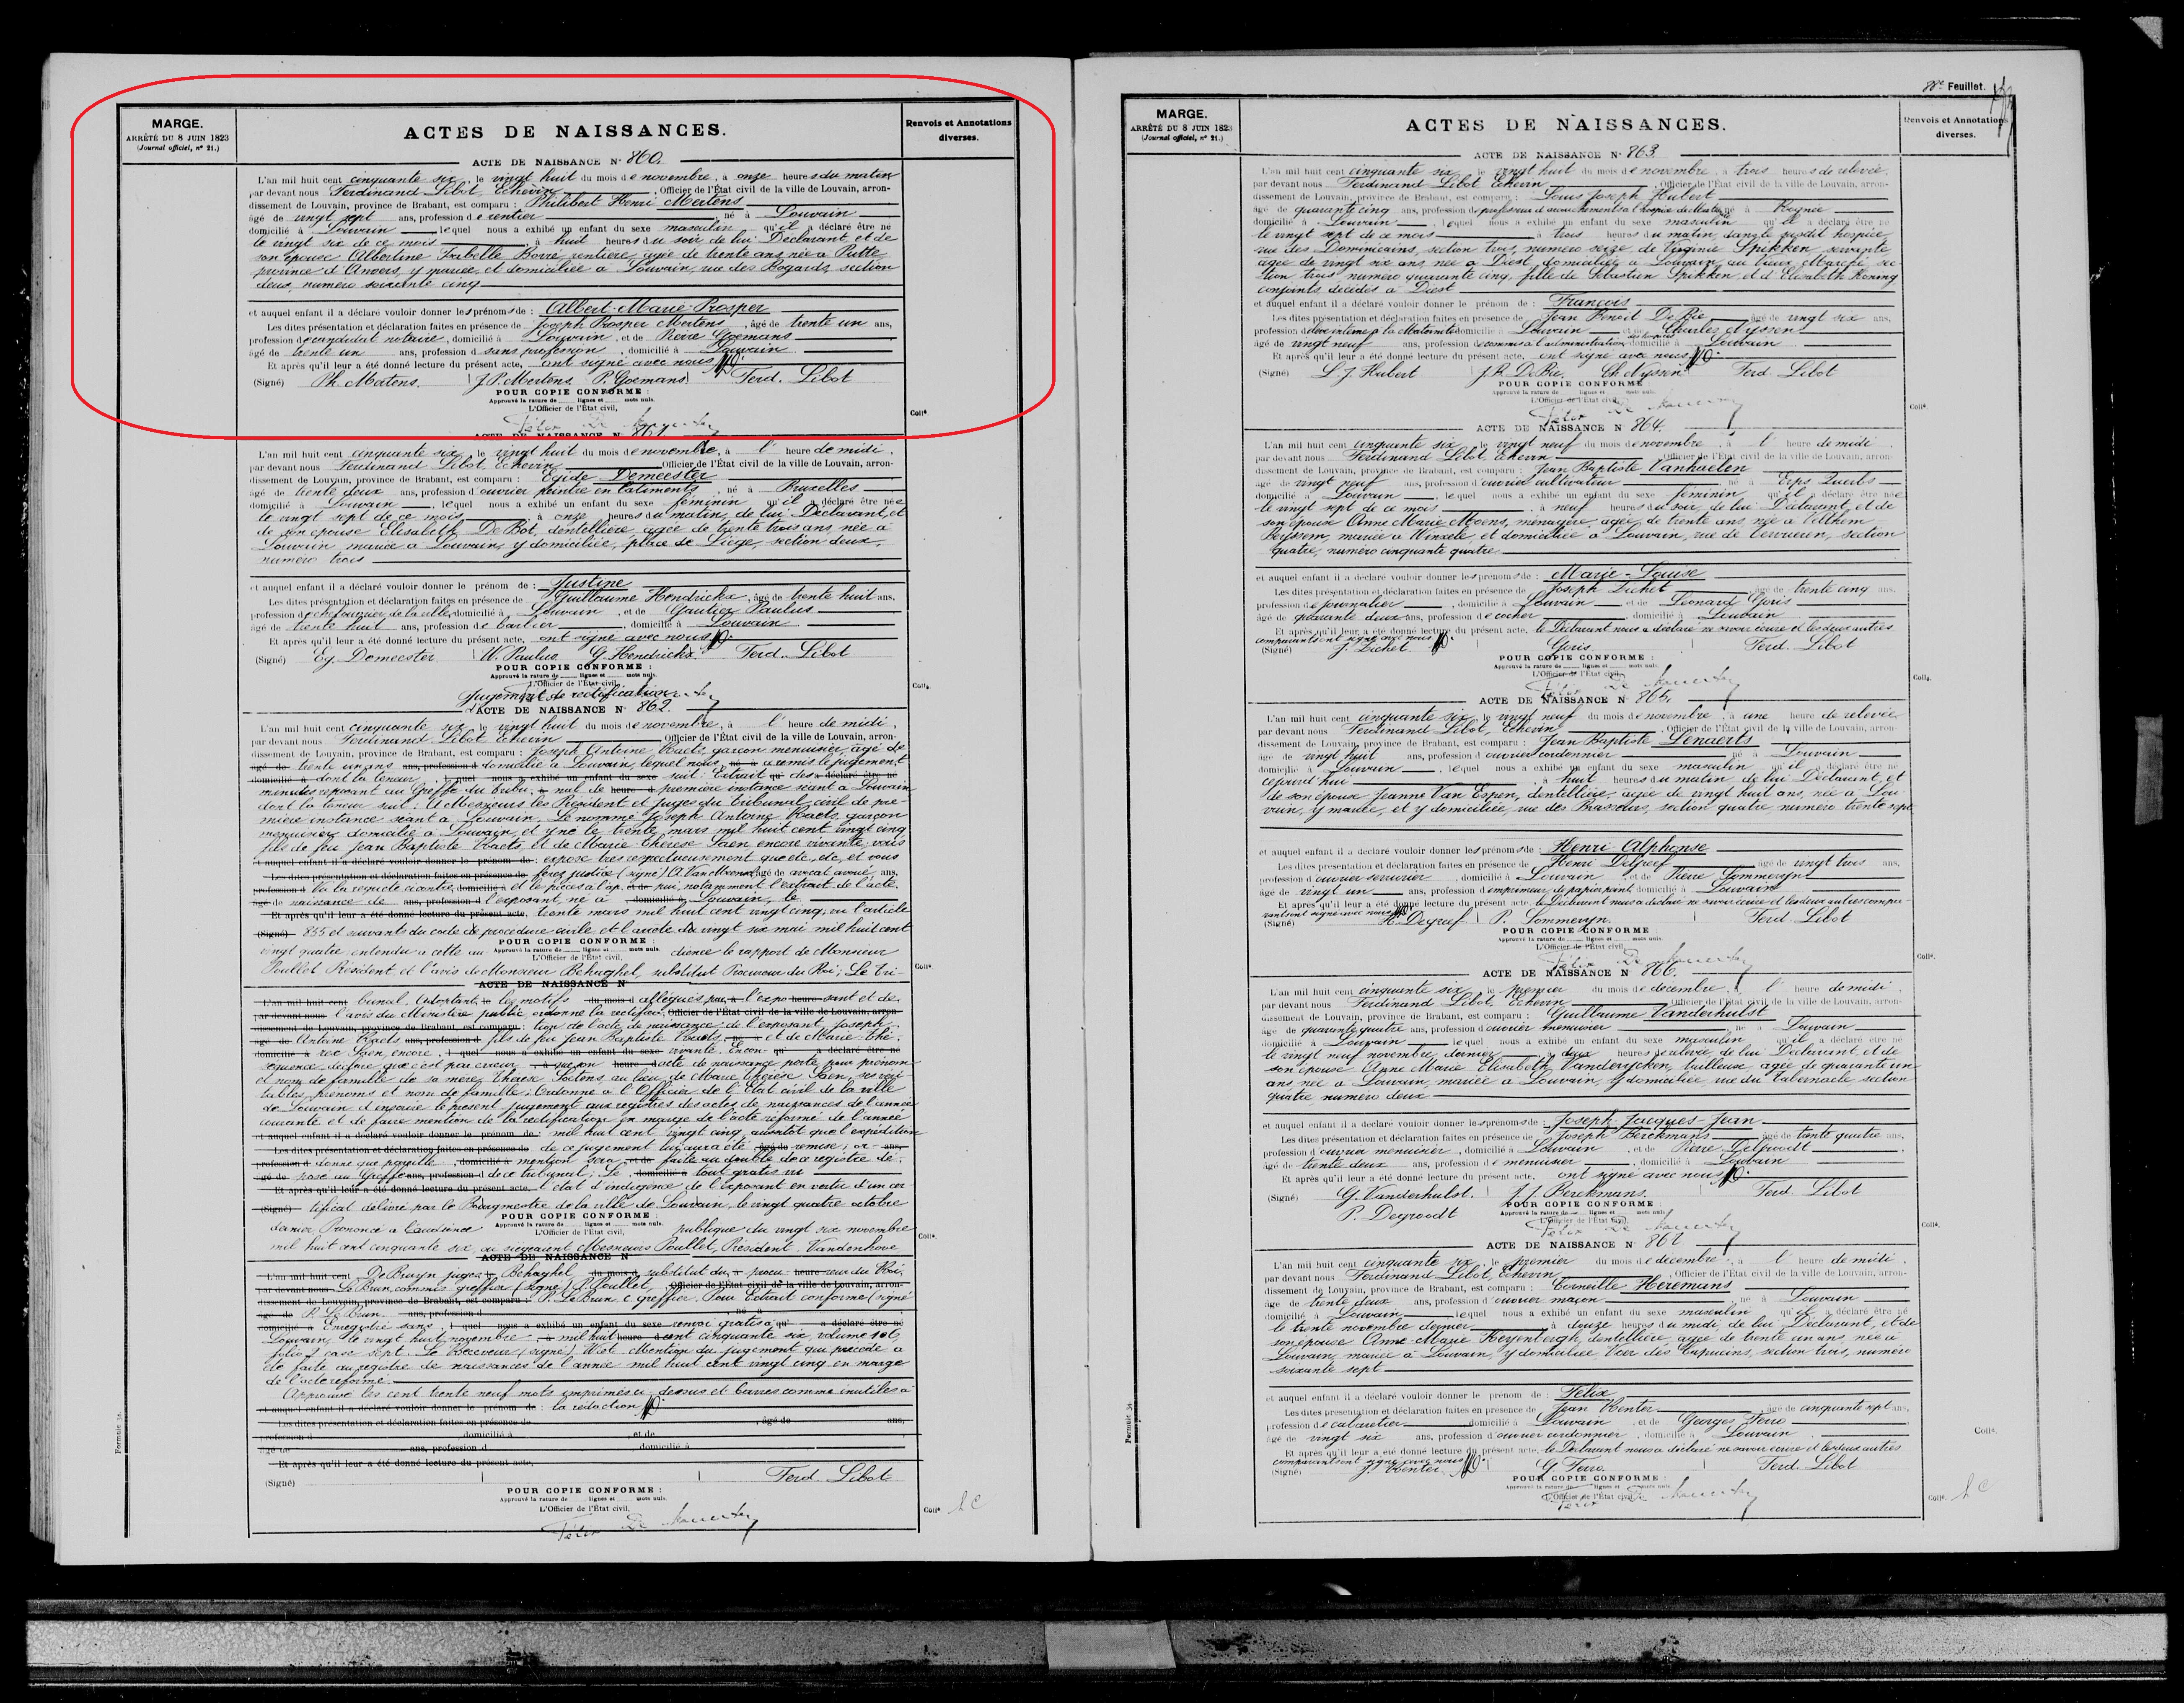 MARGE.
ARRÊTÉ DU 8 JUIN 1823
(Journal officiel, n° 21.)
ACTES DE NAISSANCES.
Renvois et Annotations
diverses.
ACTE DE NAISSANCE N° 860.
L'an mil huit cent cinquante six, le vingt huit du mois de novembre, à onze heures du matin
par devant nous Ferdinand Libot, Echevin, Officier de l'État civil de la ville de Louvain, arron-
dissement de Louvain, province de Brabant, est comparu : Philibert Henri Mertens
âgé de vingt sept ans, profession de rentier, né à Louvain
domicilié à Louvain lequel nous a exhibé un enfant du sexe masculin qu'il a déclaré être né
le vingt six de ce mois, à huit heures du soir, de lui Déclarant, et de
son épouse Albertine Isabelle Bovie, rentière, âgée de trente ans, née à Putte
province d'Anvers, y mariée, et domiciliée à Louvain, rue des Bogards, section
deux, numéro soixante cinq
et auquel enfant il a déclaré vouloir donner les prénoms de : Albert-Marie-Prosper
Les dites présentation et déclaration faites en présence de Joseph Prosper Mertens, âgé de trente un ans,
profession de candidat notaire, domicilié à Louvain, et de Pierre Goemans
âgé de trente un ans, profession d sans profession, domicilié à Louvain
Et après qu'il leur a été donné lecture du présent acte, ont signé avec nous
(Signé) Ph. Mertens. J. P. Mertens. P. Goemans Ferd. Libot
POUR COPIE CONFORME :
Approuvé la rature de lignes et mots nuls.
L'Officier de l'État civil,
Coll°.
ACTE DE NAISSANCE N° 861.
L'an mil huit cent cinquante six, le vingt huit du mois de novembre, à l' heure de midi,
par devant nous Ferdinand Libot, Echevin, Officier de l'État civil de la ville de Louvain, arron-
dissement de Louvain, province de Brabant, est comparu : Egide Demeester
âgé de trente deux ans, profession d'ouvrier peintre en bâtiments, né à Bruxelles
domicilié à Louvain, lequel nous a exhibé un enfant du sexe féminin qu'il a déclaré être née
le vingt sept de ce mois à onze heures du matin, de lui Déclarant, et
de son épouse Elisabeth De Bot, dentellière, âgée de trente trois ans, née à
Louvain, mariée à Louvain, y domiciliée, place de Liége, section deux,
numéro trois
et auquel enfant il a déclaré vouloir donner le prénom de : Justine
Les dites présentation et déclaration faites en présence de Guillaume Hendrickx, âgé de trente huit ans,
profession de chefouvrier de la ville, domicilié à Louvain, et de Gautier Paulus
âgé de trente huit ans, profession de barbier, domicilié à Louvain
Et après qu'il leur a été donné lecture du présent acte, ont signé avec nous
(Signé) Eg. Demeester W. Paulus. G. Hendrickx. Ferd. Libot
POUR COPIE CONFORME :
Approuvé la rature de lignes et mots nuls.
L'Officier de l'État civil,
Coll°.
Jugement de rectification
ACTE DE NAISSANCE N° 862.
L'an mil huit cent cinquante six, le vingt huit du mois de novembre, à l' heure de midi,
par devant nous Ferdinand Libot Echevin Officier de l'État civil de la ville de Louvain, arron-
dissement de Louvain, province de Brabant, est comparu : Joseph Antoine Raets, garçon menuisier, âgé de
trente un ans, domicilié à Louvain, lequel nous a remis le jugement
dont la teneur suit : Extrait des
minutes reposant au Greffe du tribunal de première instance séant à Louvain
dont la teneur suit : A Messieurs les Président et Juges du tribunal civil de pre-
mière instance séant à Louvain. Le nommé Joseph Antoine Raets, garçon
menuisier, domicilié à Louvain, et y né le trente mars mil huit cent vingt cinq
fils de feu Jean Baptiste Raets, et de Marie Thérèse Saen encore vivante, vous
expose très respectueusement que etc, etc, et vous
ferez justice (signé) A. Van avocat avoué,
Vu la requête ci contre, et les pièces à l'appui, notamment l'extrait de l'acte
de naissance de l'exposant, né à Louvain, le
trente mars mil huit cent vingt cinq, vu l'article
855 et suivant du code de procédure civile et l'arrêté du vingt six mai mil huit cent
vingt quatre, entendu à cette audience le rapport de Monsieur
POUR COPIE CONFORME :
Poullet Président, et l'avis de Monsieur Behaghel, substitut Procureur du Roi; Le Tri-
ACTE DE NAISSANCE N°
bunal, Adoptant les motifs allégués par l'exposant et de
l'avis du Ministère public ordonne la rectifica-
tion de l'acte de naissance de l'exposant, Joseph
Antoine Raets, fils de feu Jean Baptiste Raets, et de Marie Thé-
rèse Saen, encore vivante. En con-
séquence déclare que c'est par erreur que son acte de naissance porte pour prénom
et nom de famille de sa mère, Thérèse Soetens, au lieu de Marie Thérèse Saen, ses véri-
tables prénoms et nom de famille; Ordonne à l'Officier de l'État civil de la ville
de Louvain d'inscrire le présent jugement aux registres des actes de naissances de l'année
courante et de faire mention de la rectification en marge de l'acte réformé de l'année
mil huit cent vingt cinq, aussitôt que l'expédition
de ce jugement lui aura été remise; or-
donne que pareille mention sera faite au double de ce registre dé-
posé au Greffe de ce tribunal. Le tout gratis vu
l'état d'indigence de l'exposant en vertu d'un cer-
tificat délivré par le Bourgmestre de la ville de Louvain, le vingt quatre octobre
POUR COPIE CONFORME :
dernier. Prononcé à l'audience publique du vingt six novembre
mil huit cent cinquante six, où siégeaient Messieurs Poullet, Président, Vandenhove
ACTE DE NAISSANCE N°
De Bruyn juges, Behaghel substitut du procureur du Roi,
Le Brun commis greffier (signé) P. Poullet,
P. Le Brun, c. greffier. Pour Extrait conforme (signé
P. Le Brun.
Enregistré sans renvoi gratis à
Louvain, le vingt huit novembre mil huit cent cinquante six, volume 106,
folio case sept. Le Receveur (signé) Mention du jugement qui précède a
été faite au registre de naissances de l'année mil huit cent vingt cinq en marge
de l'acte réformé.
Approuvé les cent trente neuf mots imprimés ci-dessus et barrés comme inutiles à
la rédaction
(Signé) Ferd. Libot
POUR COPIE CONFORME :
Approuvé la rature de lignes et mots nuls.
L'Officier de l'État civil,
Coll°.
Formule 34.
8e Feuillet.
MARGE.
ARRÊTÉ DU 8 JUIN 1823
(Journal officiel, n° 21.)
ACTES DE NAISSANCES.
Renvois et Annotations
diverses.
ACTE DE NAISSANCE N° 863.
L'an mil huit cent cinquante six, le vingt huit du mois de novembre, à trois heures de relevée,
par devant nous Ferdinand Libot, Echevin, Officier de l'État civil de la ville de Louvain, arron-
dissement de Louvain, province de Brabant, est comparu : Louis Joseph Hubert
âgé de quarante cinq ans, profession de professeur d'accouchements à l'hospice de Maternité né à Rognée
domicilié à Louvain, lequel nous a exhibé un enfant du sexe masculin qu'il a déclaré être né
le vingt sept de ce mois à trois heures du matin, dans le susdit hospice,
rue des Dominicains, section trois, numéro seize, de Virginie Spikken, servante
âgée de vingt six ans, née à Diest, domiciliée à Louvain, au Vieux Marché, sec-
tion trois numéro quarante cinq, fille de Sébastien Spikken, et d'Elisabeth Koning
conjoints décédés à Diest
et auquel enfant il a déclaré vouloir donner le prénom de : François
Les dites présentation et déclaration faites en présence de Jean Benoit De Bie, âgé de vingt six ans,
profession d'élève interne à la Maternité domicilié à Louvain et de Charles Nyssen
âgé de vingt neuf ans, profession de commis à l'administration des hospices domicilié à Louvain
Et après qu'il leur a été donné lecture du présent acte, ont signé avec nous
(Signé) L. J. Hubert J. B. De Bie. Ch. Nyssen. Ferd. Libot
POUR COPIE CONFORME :
Approuvé la rature de lignes et mots nuls.
L'Officier de l'État civil,
Coll°.
ACTE DE NAISSANCE N° 864.
L'an mil huit cent cinquante six, le vingt neuf du mois de novembre, à l' heure de midi,
par devant nous Ferdinand Libot, Echevin, Officier de l'État civil de la ville de Louvain, arron-
dissement de Louvain, province de Brabant, est comparu : Jean Baptiste Vanhaelen
âgé de vingt neuf ans, profession d'ouvrier cultivateur, né à Erps Querbs
domicilié à Louvain, lequel nous a exhibé un enfant du sexe féminin qu'il a déclaré être née
le vingt sept de ce mois à neuf heures du soir, de lui Déclarant, et de
son épouse Anne Marie Moens, ménagère, âgée de trente ans, née à Velthem
Beyssem, mariée à Winxele, et domiciliée à Louvain, rue de Tervueren, section
quatre, numéro cinquante quatre
et auquel enfant il a déclaré vouloir donner les prénoms de : Marie-Louise
Les dites présentation et déclaration faites en présence de Joseph Dichet, âgé de trente cinq ans,
profession de journalier, domicilié à Louvain et de Léonard Goris
âgé de quarante deux ans, profession de cocher, domicilié à Louvain
Et après qu'il leur a été donné lecture du présent acte, le Déclarant nous a déclaré ne savoir écrire et les deux autres
comparants ont signé avec nous
(Signé) J. Dichet. Goris. Ferd. Libot
POUR COPIE CONFORME :
Approuvé la rature de lignes et mots nuls.
L'Officier de l'État civil,
Coll°.
ACTE DE NAISSANCE N° 865.
L'an mil huit cent cinquante six, le vingt neuf du mois de novembre, à une heure de relevée
par devant nous Ferdinand Libot, Echevin, Officier de l'État civil de la ville de Louvain, arron-
dissement de Louvain, province de Brabant, est comparu : Jean Baptiste Lenaerts
âgé de vingt huit ans, profession d'ouvrier cordonnier né à Louvain
domicilié à Louvain, lequel nous a exhibé un enfant du sexe masculin qu'il a déclaré être né
cejourd'hui, à huit heures du matin de lui Déclarant, et
de son épouse Jeanne Van Espen, dentellière, âgée de vingt huit ans, née à Lou-
vain, y mariée, et y domiciliée, rue des Brasseurs, section quatre, numéro trente sept
et auquel enfant il a déclaré vouloir donner les prénoms de : Henri-Alphonse
Les dites présentation et déclaration faites en présence de Henri Degreef âgé de vingt trois ans,
profession d'ouvrier serrurier, domicilié à Louvain, et de Pierre Sommeryn
âgé de vingt un ans, profession d'imprimeur de papier peint, domicilié à Louvain
Et après qu'il leur a été donné lecture du présent acte, le Déclarant nous a déclaré ne savoir écrire et les deux autres compa-
rants ont signé avec nous
(Signé) H. Degreef P. Sommeryn. Ferd. Libot
POUR COPIE CONFORME :
Approuvé la rature de lignes et mots nuls.
L'Officier de l'État civil,
Coll°.
ACTE DE NAISSANCE N° 866.
L'an mil huit cent cinquante six, le premier du mois de décembre, à l' heure de midi
par devant nous Ferdinand Libot, Echevin, Officier de l'État civil de la ville de Louvain, arron-
dissement de Louvain, province de Brabant, est comparu : Guillaume Vanderhulst
âgé de quarante quatre ans, profession d'ouvrier menuisier, né à Louvain
domicilié à Louvain lequel nous a exhibé un enfant du sexe masculin qu'il a déclaré être né
le vingt neuf novembre dernier, à deux heures de relevée, de lui Déclarant, et de
son épouse Anne Marie Elisabeth Vandersycken, tailleuse, âgée de quarante un
ans, née à Louvain, mariée à Louvain, y domiciliée, rue du Tabernacle section
quatre, numéro deux
et auquel enfant il a déclaré vouloir donner les prénoms de : Joseph-Jacques-Jean
Les dites présentation et déclaration faites en présence de Joseph Berckmans, âgé de trente quatre ans,
profession d'ouvrier menuisier, domicilié à Louvain, et de Pierre Degroodt
âgé de trente deux ans, profession de menuisier, domicilié à Louvain
Et après qu'il leur a été donné lecture du présent acte, ont signé avec nous
(Signé) G. Vanderhulst. J. J. Berckmans. Ferd. Libot
P. Degroodt
POUR COPIE CONFORME
Approuvé la rature de lignes et mots nuls.
L'Officier de l'État civil,
Coll°.
ACTE DE NAISSANCE N° 867
L'an mil huit cent cinquante six, le premier du mois de décembre, à l' heure de midi,
par devant nous Ferdinand Libot, Echevin, Officier de l'État civil de la ville de Louvain, arron-
dissement de Louvain, province de Brabant, est comparu : Corneille Heremans
âgé de trente deux ans, profession d'ouvrier maçon, né à Louvain
domicilié à Louvain lequel nous a exhibé un enfant du sexe masculin qu'il a déclaré être né
le trente novembre dernier à douze heures du midi, de lui Déclarant, et de
son épouse Anne-Marie Keyenbergh, dentellière, âgée de trente un ans, née à
Louvain, mariée à Louvain, y domiciliée, Voer des Capucins, section trois, numéro
soixante sept
et auquel enfant il a déclaré vouloir donner le prénom de : Félix
Les dites présentation et déclaration faites en présence de Jean Kenter, âgé de cinquante sept ans,
profession de cabaretier domicilié à Louvain, et de Georges Ferro
âgé de vingt six ans, profession d'ouvrier cordonnier, domicilié à Louvain
Et après qu'il leur a été donné lecture du présent acte, le Déclarant nous a déclaré ne savoir écrire et les deux autres
comparants ont signé avec nous
(Signé) J. Kenter G. Ferro. Ferd. Libot
POUR COPIE CONFORME :
Approuvé la rature de lignes et mots nuls.
L'Officier de l'État civil,
Coll°.
Formule 34.